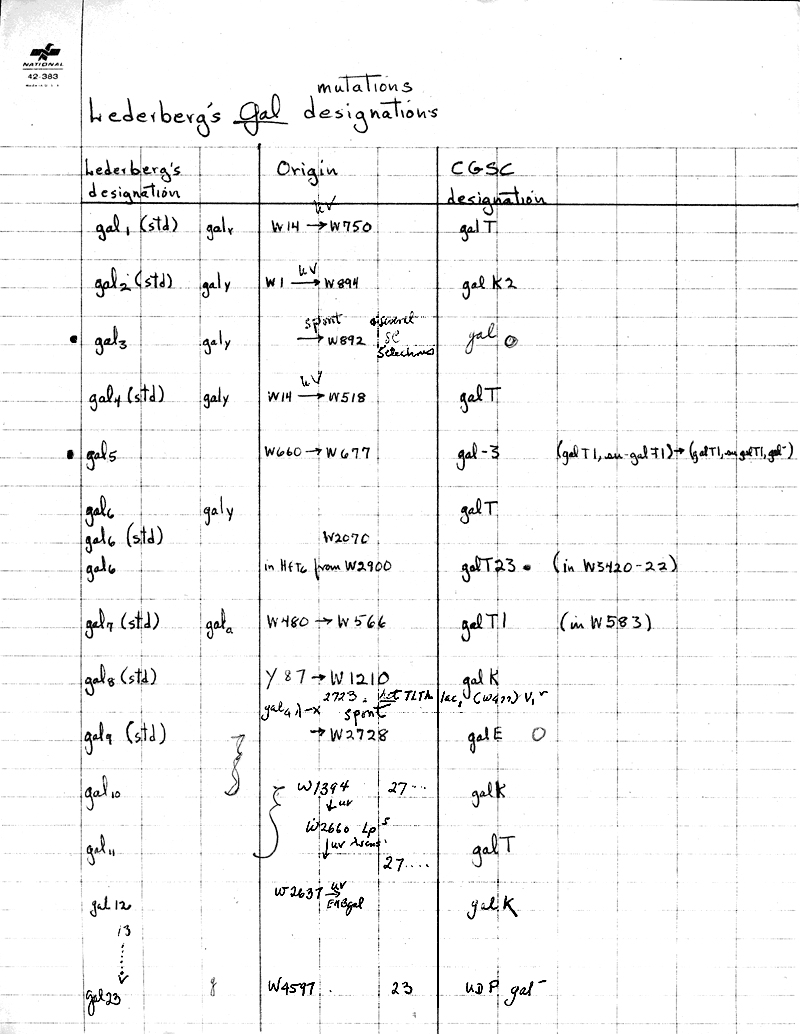 NATIONAL
42-383
mutations
Lederberg's gal designations
Lederberg's designation Origin CGSC designation
gal1 (std) galx W14 uv → W750 galT
gal2 (std) galy W1 uv → W894 galK2
• gal3 galy spont → W892 several SC Selections gal
gal4 (std) galy W14 uv → W518 galT
• gal5 W660 → W677 gal-3 (galT1, su-galT1) → (galT1, su galT1, gal-)
gal6 galy galT
gal6 (std) W2070
gal6 in Hfr6 from W2900 galT23 • (in W3420-22)
gal7 (std) gala W480 → W566 galT1 (in W583)
gal8 (std) Y87 → W1210 galK
gal4 λ-x 2723 · not TLTh lac1 (W477) V1r
gal9 (std) spont → W2728 galE O
gal10 W1394 27... galK
↓ uv
W2660 Lps
gal11 ↓ uv galT
27....
W2637 uv → EMBgal
gal12 galK
13
gal23 W4597 23 UDP gal-